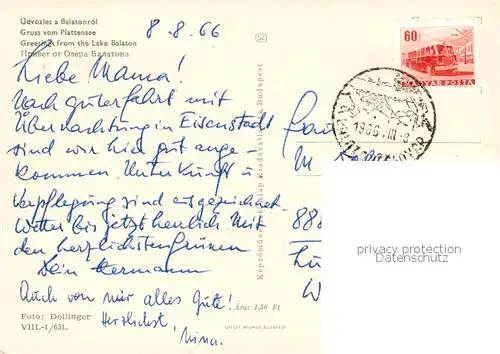 Üdvözlet a Balatonról
Gruss vom Plattensee
Greetings from the Lake Balaton
Привет от Озера Балатона
8. 8. 66
60 f
MAGYAR POSTA
Liebe Mama!
Nach guter Fahrt mit
Übernachtung in Eisenstadt
sind wir hier gut ange-
kommen. Unterkunft u
Verpflegung sind ausgezeichnet
Wetter bis jetzt herrlich. Mit
den herzlichsten Grüssen
Dein Hermann
Auch von mir alles Gute!
Herzlichst,
Nina.
Ára: 1,50 Ft
Foto: Dollinger
VIII.-1/651.
OFFSET NYOMDA BUDAPEST
Képzőművészeti Alap Kiadóvállalata, Budapest
1966 VIII
M
888
W
privacy protection
Datenschutz